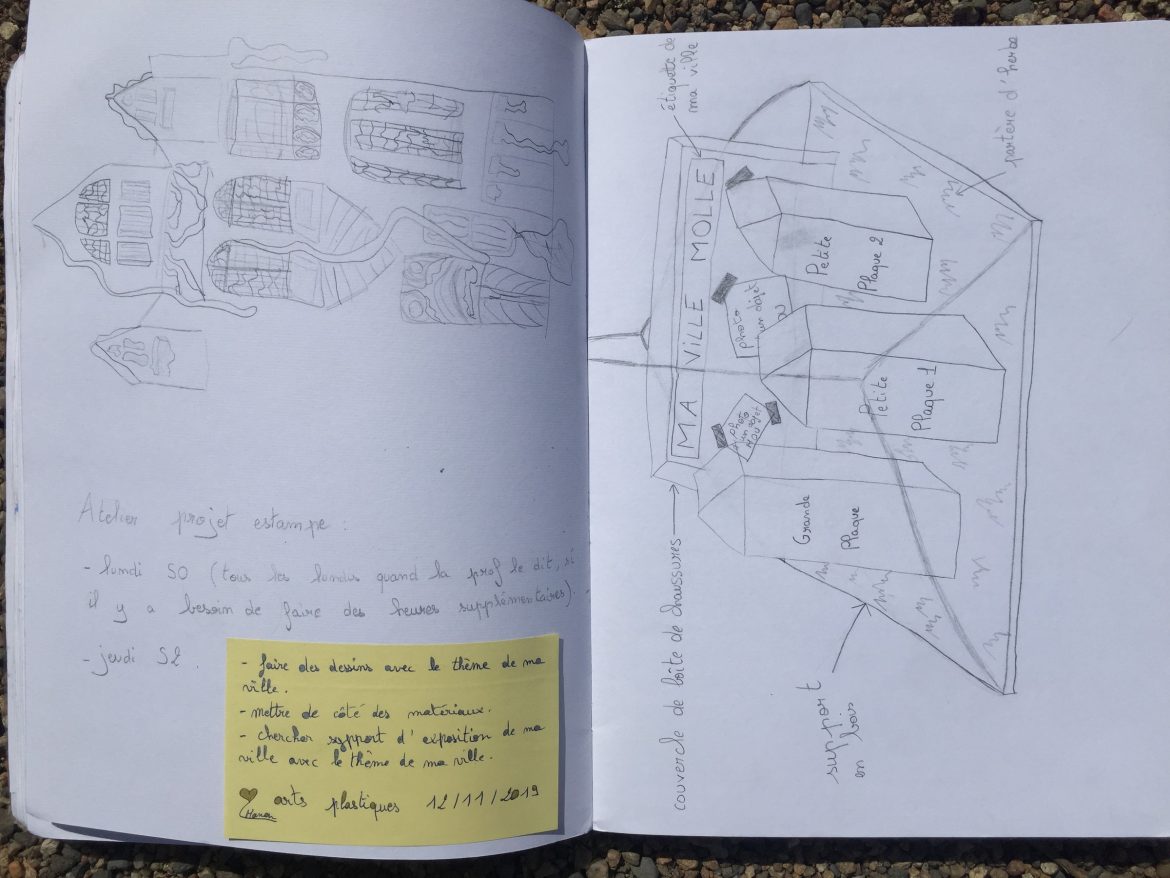 Atelier projet estampe :
- lundi S0 (tous les lundis quand la prof le dit, si
il y a besoin de faire des heures supplémentaires).
- jeudi S2.
- faire des dessins avec le thème de ma
ville.
- mettre de côté des matériaux.
- chercher support d'exposition de ma
ville avec le thème de ma ville.
Manon
arts plastiques 12/11/2019
couvercle de boîte de chaussures
étiquette de
ma ville
MA VILLE MOLLE
photo
un objet
MOU
photo
un objet
MOU
Grande
Plaque
Petite
Plaque 1
Petite
Plaque 2
partère d'herbe
support
en
bois